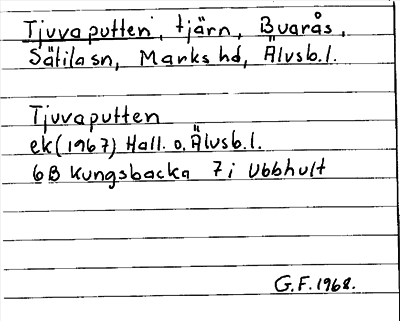 Tjuvaputten, tjärn, Buarås,
Sätila sn, Marks hd, Älvsb.l.
Tjuvaputten
ek (1967) Hall. o. Älvsb.l.
6B Kungsbacka 7i Ubbhult
G.F. 1968.